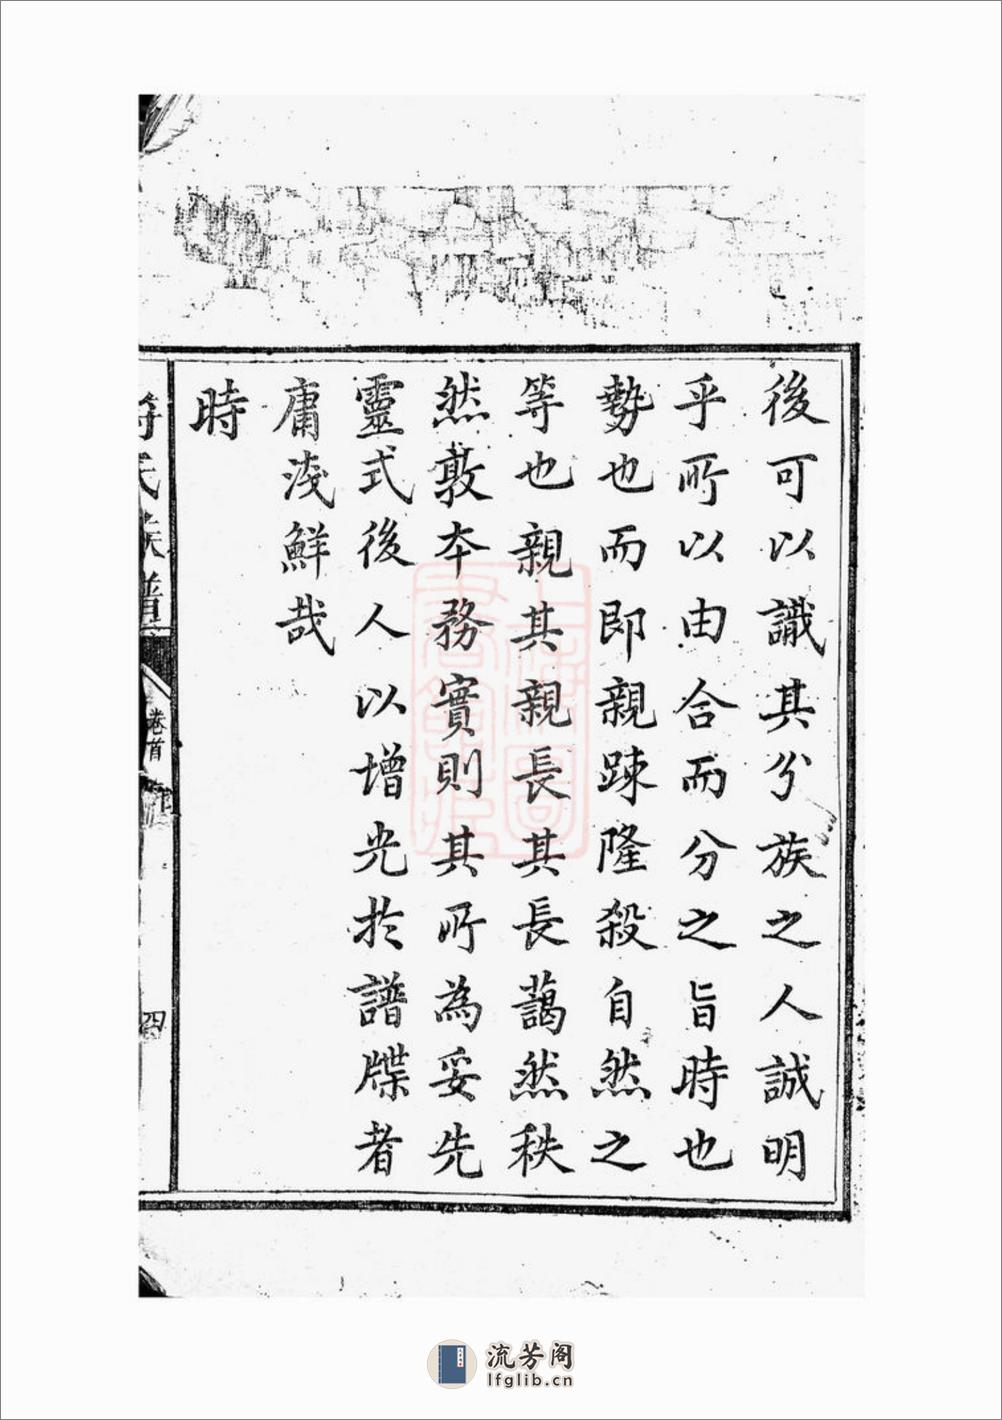 後可以識其分族之人誠明
乎所以由合而分之旨時也
勢也而即親踈隆殺自然之
等也親其親長其長藹然秩
然敦本務實則其所為妥先
靈式後人以增光於譜牒者
庸淺鮮哉
時
符氏族譜
卷首
四
流芳阁
lfglib.cn